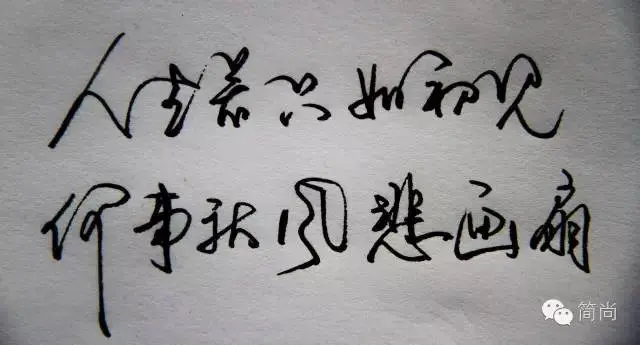 人生若只如初见
何事秋风悲画扇
简尚